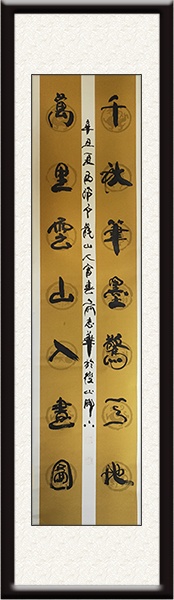 千秋筆墨驚天地
辛丑夏山人志華於山脚下
萬里雲山入畫圖